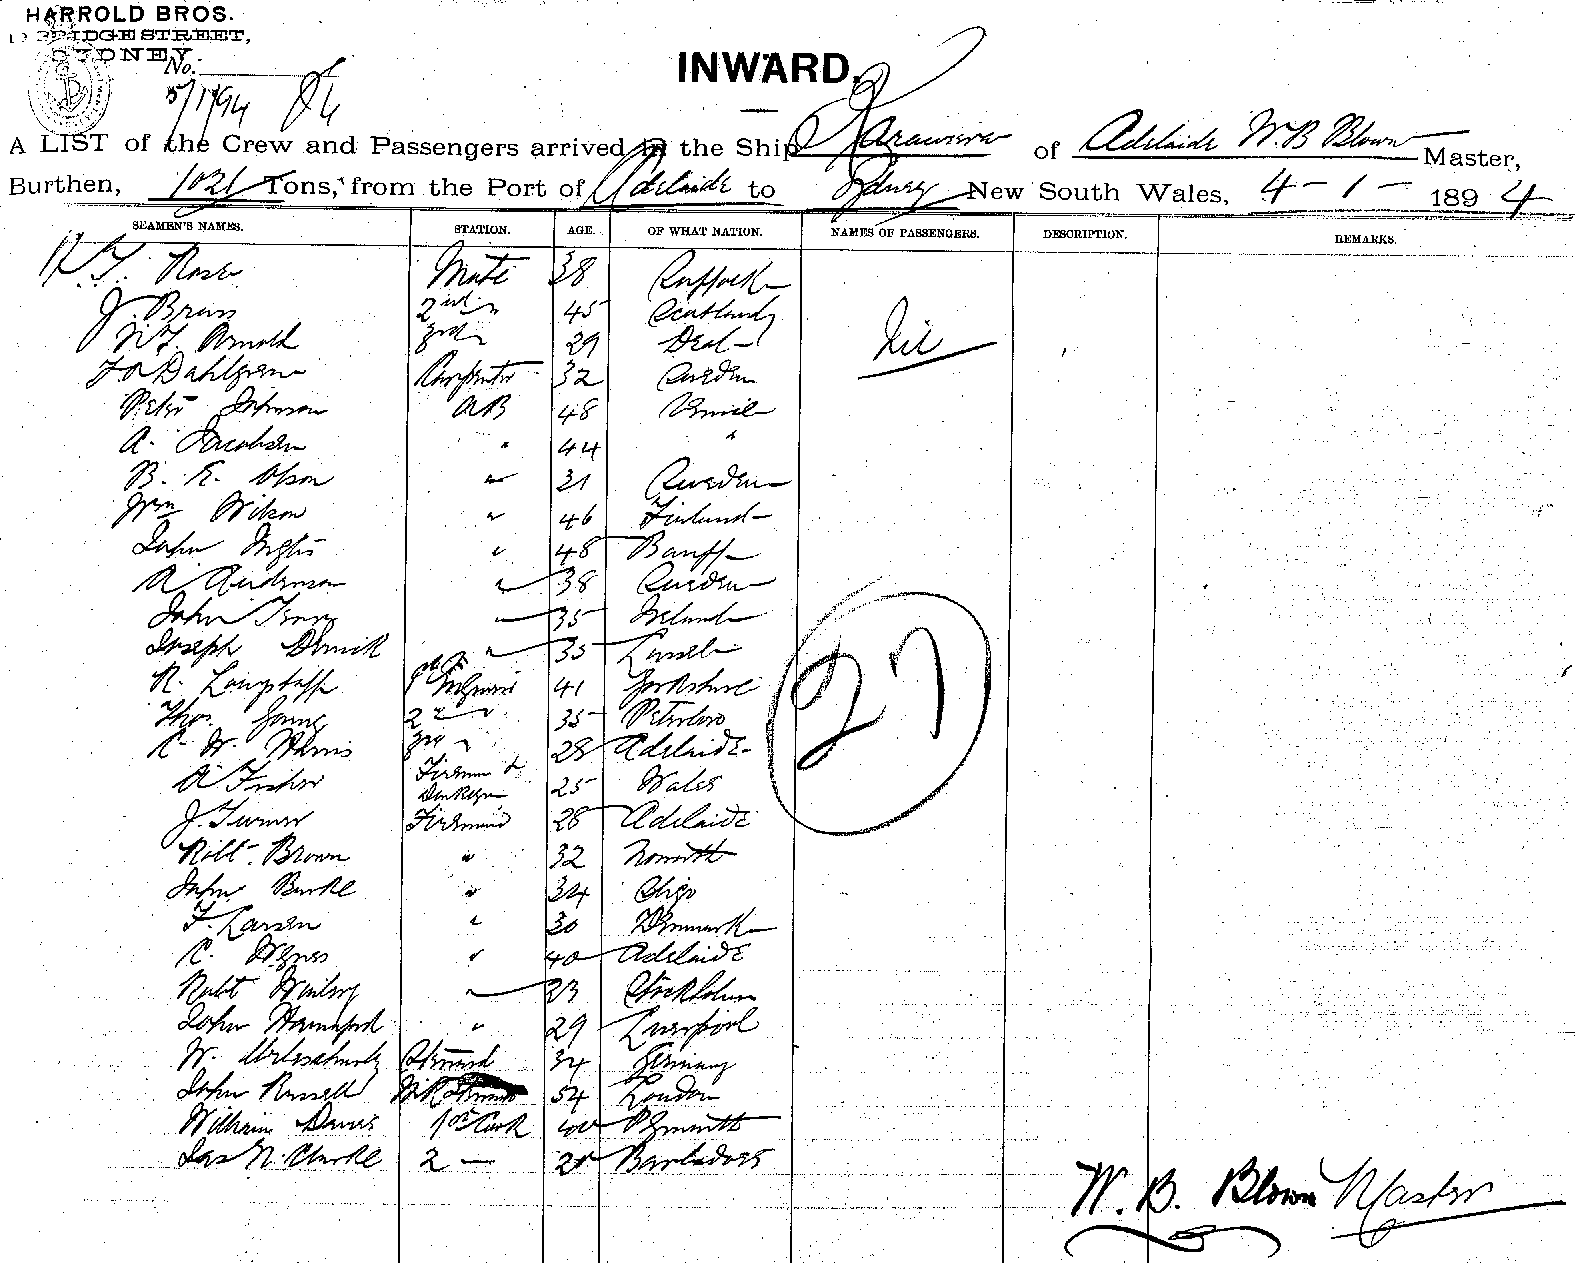 HARROLD BROS.
BRIDGE STREET,
SYDNEY.
No.
5/1/94
INWARD.
A LIST of the Crew and Passengers arrived in the Ship of Adelaide W. B Blown Master,
Burthen, 1021 Tons, from the Port of Adelaide to Sydney New South Wales, 4 - 1 - 1894
SEAMEN'S NAMES. STATION. AGE. OF WHAT NATION. NAMES OF PASSENGERS. DESCRIPTION. REMARKS.
Rose Mate 38 Suffolk
J. Brown 2nd " 45 Scotland
Arnold 3rd " 29 Deal Nil
Dahlgren Carpenter 32 Sweden
Peter Johnson AB 48
A. Jacobsen " 44 "
B. E. Olson " 31 Sweden
Wm Wilson " 46 Finland
John Inglis " 48 Banff
A Anderson " 38 Sweden
John " 35 Ireland
Joseph " 35
R. Longstaff 1st Engineer 41 Yorkshire
Thos. Young 2nd " 35 Peterboro
C. W. Harris 3rd " 28 Adelaide
A Fisher Fireman & Donkeyman 25 Wales
J. Turner Fireman 28 Adelaide
Robt. Brown " 32
John Burke " 34 Sligo
F. Larsen " 30 Denmark
C. " 40 Adelaide
Robt " 23 Stockholm
John Hannaford " 29 Liverpool
W. Steward 34 Germany
John Russell 54 London
William Davis 1st Cook 40 Plymouth
Jas N. Clarke 2 — 20 Barbadoes
27
W. B. Blown Master